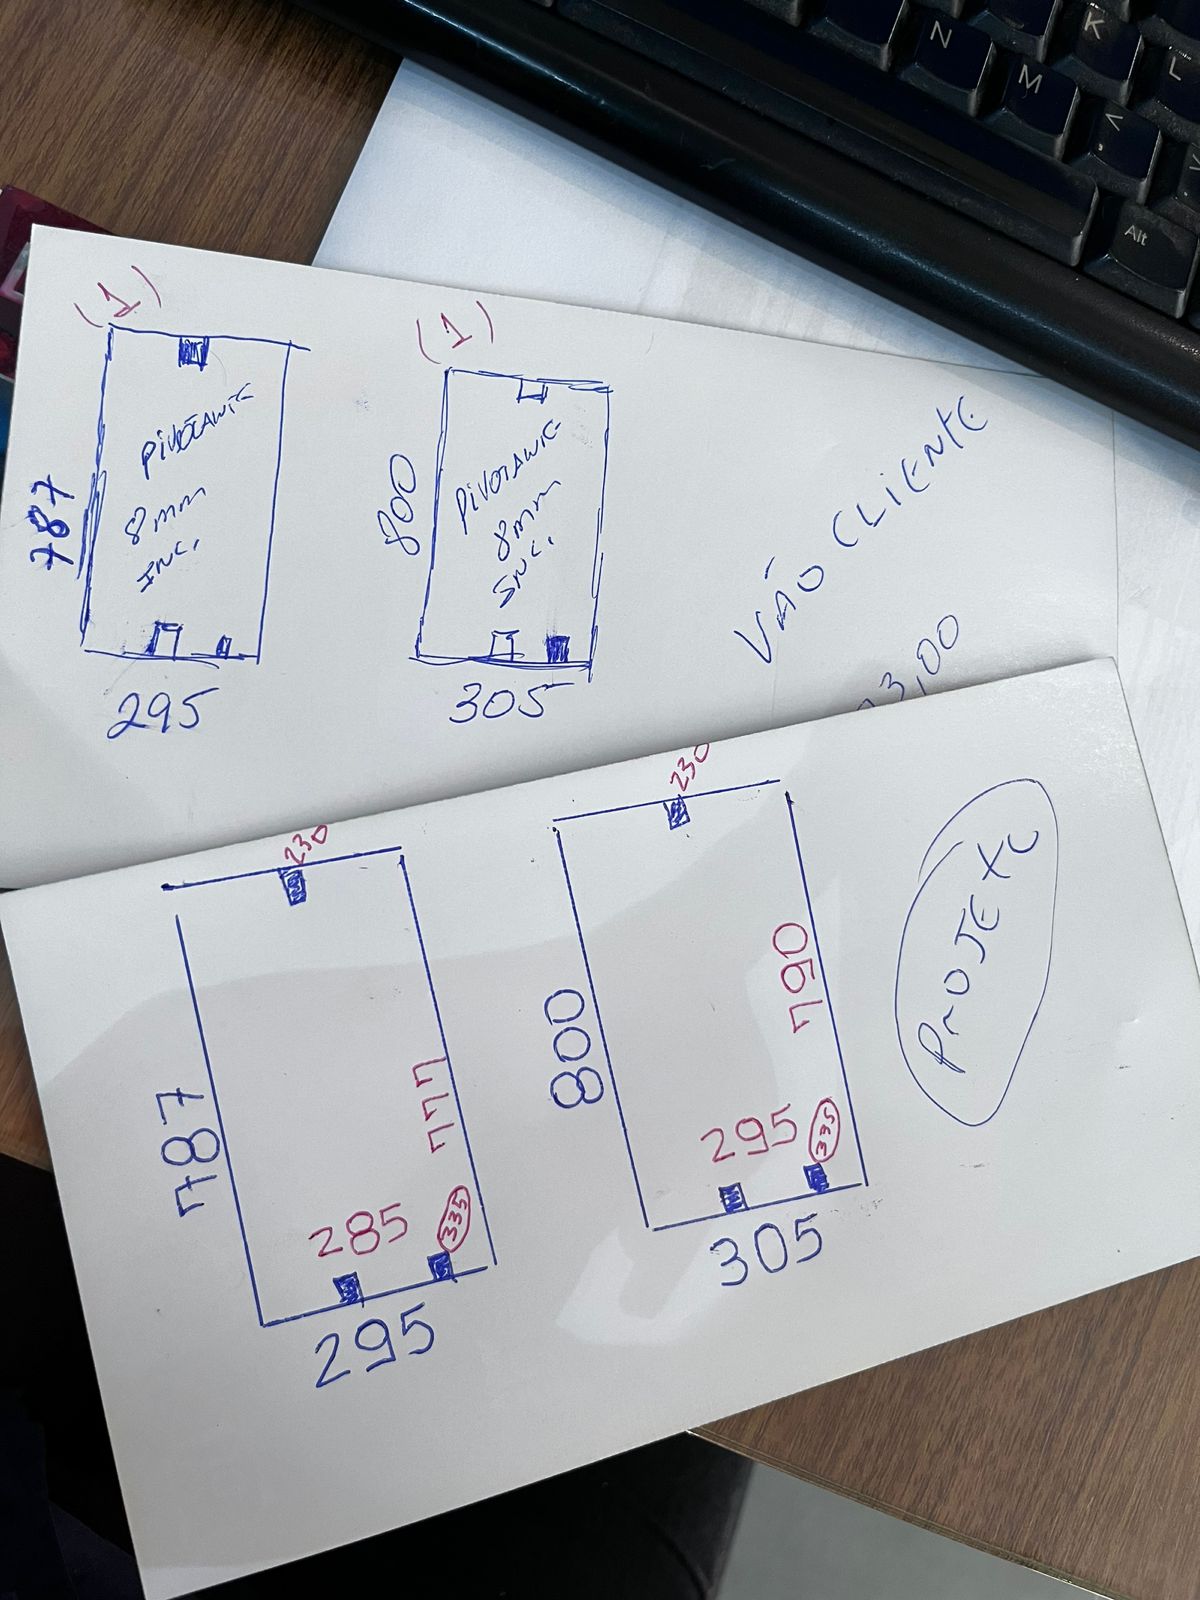 N
M
K
L
Alt
(1)
(1)
PIVOTANTE
8mm
INC.
787
295
PIVOTANTE
8mm
INC.
800
305
VÃO CLIENTE
3,00
230
787
777
285
335
295
230
800
790
295
335
305
PROJETO